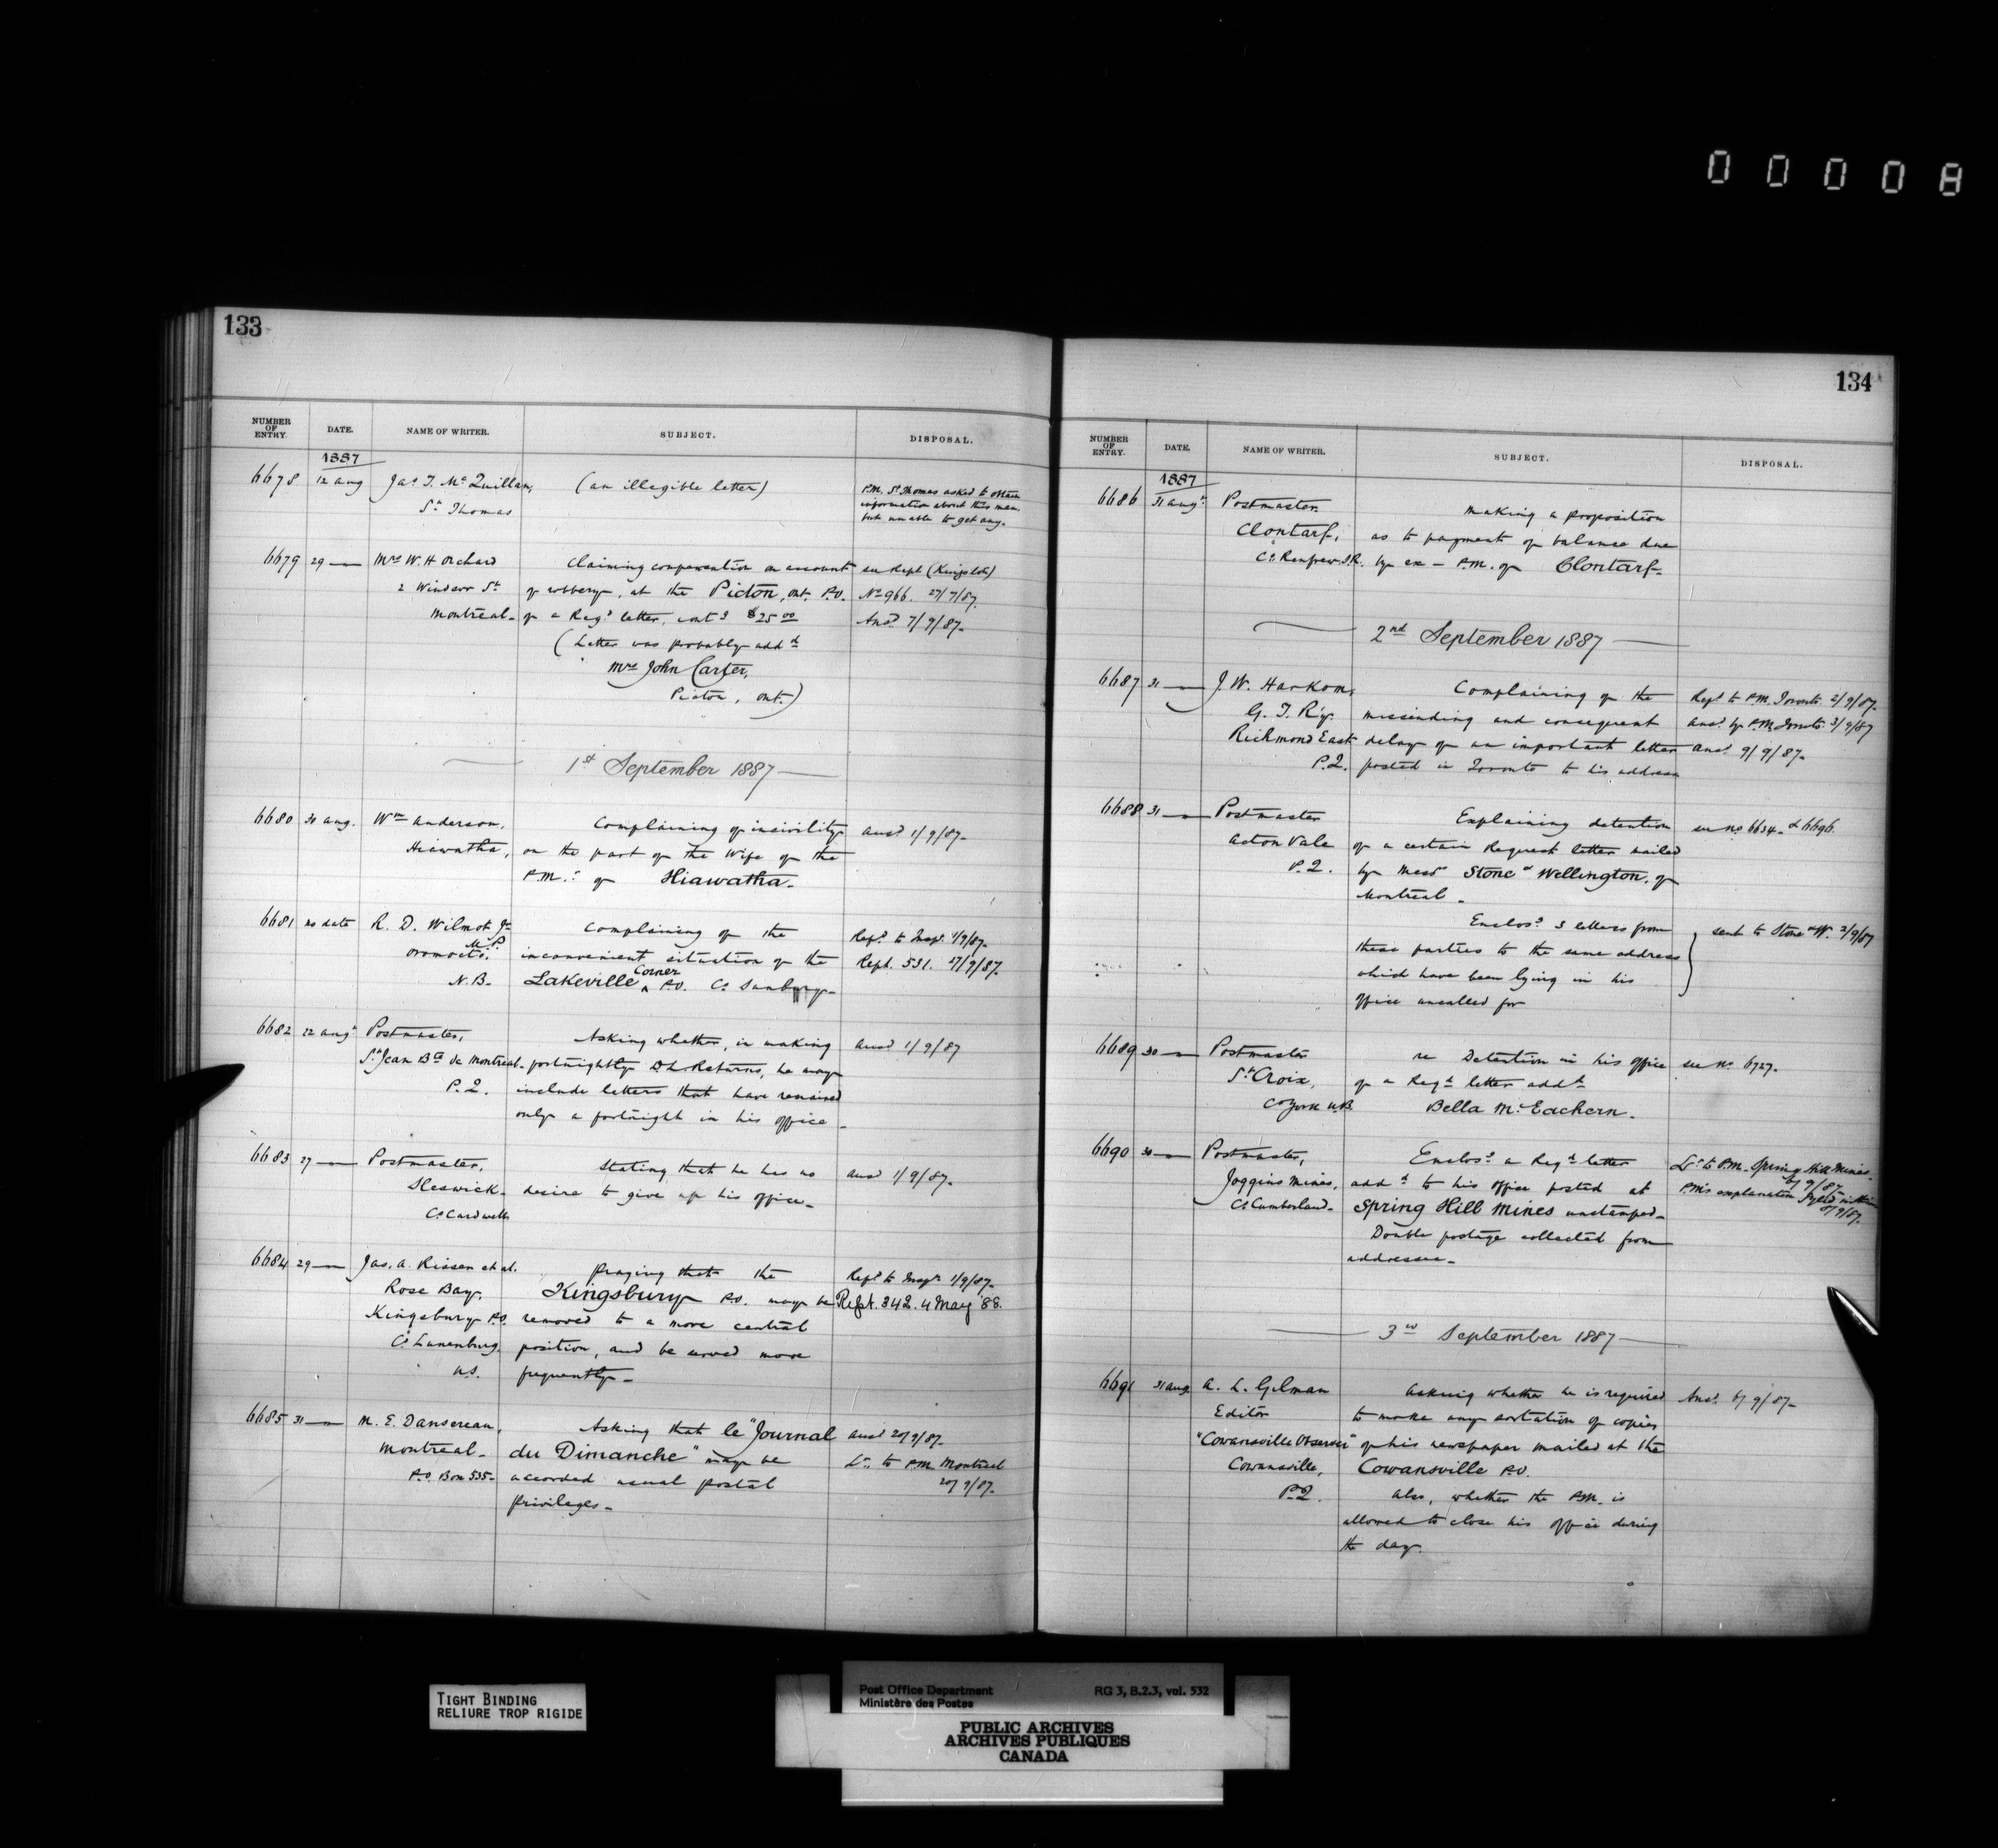 0 0 0 0 8
133
NUMBER OF ENTRY. DATE. NAME OF WRITER. SUBJECT. DISPOSAL.
1887
6678 12 Aug Jas T. McQuillan, (an illegible letter) P.M. St Thomas asked to obtain
St Thomas information about this man,
but unable to get any.
6679 29 — Mrs W. H Orchard Claiming compensation on account see Rept (Kingston)
2 Windsor St of robbery, at the Picton, Ont. P.O. No 966. 27/7/87.
Montreal - of a Regd letter, contg $25 00 Ansd 7/9/87.
(Letter was probably addd
Mrs John Carter,
Picton, Ont.)
1st September 1887
6680 30 Aug. Wm Anderson, Complaining of incivility ansd 1/9/87.
Hiawatha, on the part of the Wife of the
P.M. of Hiawatha.
6681 no date R. D. Wilmot Jr Complaining of the Refd to Inspr 1/9/87.
M.P.
Oromocto. inconvenient situation of the Rept. 531. 17/9/87.
N.B. Lakeville Corner P.O. Co Sunbury
6682 22 Augt Postmaster, Asking whether, in making ansd 1/9/87
St Jean Bte de Montreal - fortnightly DL Returns, he may
P.Q. include letters that have remained
only a fortnight in his office -
6683 27 — Postmaster, Stating that he has no ansd 1/9/87.
Sleswick - desire to give up his office -
Co Cardwell
6684 29 — Jas. A. Risser et al. praying that the Refd to Inspr 1/9/87.
Rose Bay, Kingsbury P.O. may be Rept. 342. 4 May '88.
Kingsbury P.O. removed to a more central
Co Lunenburg, position, and be served more
N.S. frequently -
6685 31 — M. E. Dansereau, Asking that le "Journal ansd 20/9/87.
Montreal - du Dimanche" may be Lr to P.M. Montreal
P.O. Box 535 - accorded usual postal 20/9/87.
privileges -
134
NUMBER OF ENTRY. DATE. NAME OF WRITER. SUBJECT. DISPOSAL.
1887
6686 31 Augt Postmaster Making a proposition
Clontarf, as to payment of balance due
Co Renfrew S.R. by ex-P.M. of Clontarf -
2nd September 1887
6687 31 — J. W. Harkom, Complaining of the Refd to P.M. Toronto 2/9/87.
G. T. R'y. missending and consequent ansd by P.M. Toronto 3/9/87
Richmond East delay of an important letter ansd 9/9/87.
P.Q. posted in Toronto to his address
6688 31 — Postmaster Explaining detention see no 6634 & 6696.
Acton Vale of a certain Request letter mailed
P.Q. by Messrs Stone & Wellington, of
Montreal -
Enclosg 3 letters from
these parties to the same address sent to Stone & W. 2/9/87
which have been lying in his
office uncalled for
6689 30 — Postmaster re Detention in his office see no 6727.
St Croix, of a Regd letter addd
Co York N.B. Bella McEachern.
6690 30 — Postmaster, Enclosg a Regd letter Lr to P.M. Spring Hill Mines
6/9/87
Joggins Mines, addd to his office posted at P.M's explanation
8/9/87.
Co Cumberland - Spring Hill Mines unstamped -
Double postage collected from
addressee -
3rd September 1887
6691 31 Aug. A. L. Gilman Asking whether he is required Ansd 6/9/87 -
Editor to make any sortation of copies
"Cowansville Observer" of his newspaper mailed at the
Cowansville, Cowansville P.O.
P.Q. Also, whether the P.M. is
allowed to close his office during
the day.
TIGHT BINDING
RELIURE TROP RIGIDE
Post Office Department RG 3, B.2.3, vol. 532
Ministère des Postes
PUBLIC ARCHIVES
ARCHIVES PUBLIQUES
CANADA